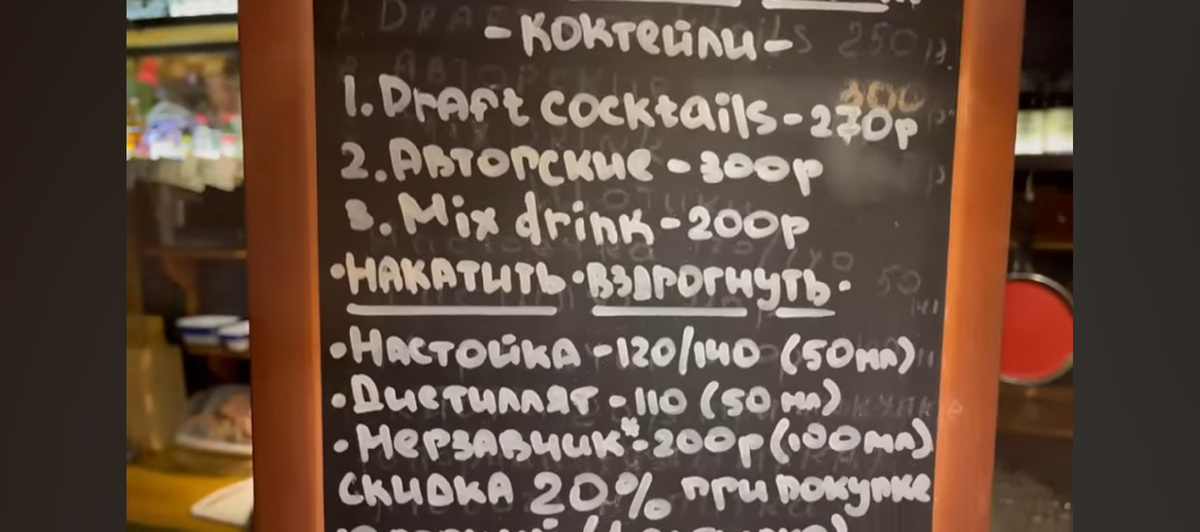 -Коктейли-
1. Draft cocktails - 270р
2. Авторские - 300р
3. Mix drink - 200р
•НАКАТИТЬ•ВЗДРОГНУТЬ•
•Настойка - 120/140 (50мл)
•Дистиллят - 110 (50мл)
•Мерзавчик* - 200р (100мл)
СКИДКА 20% при покупке